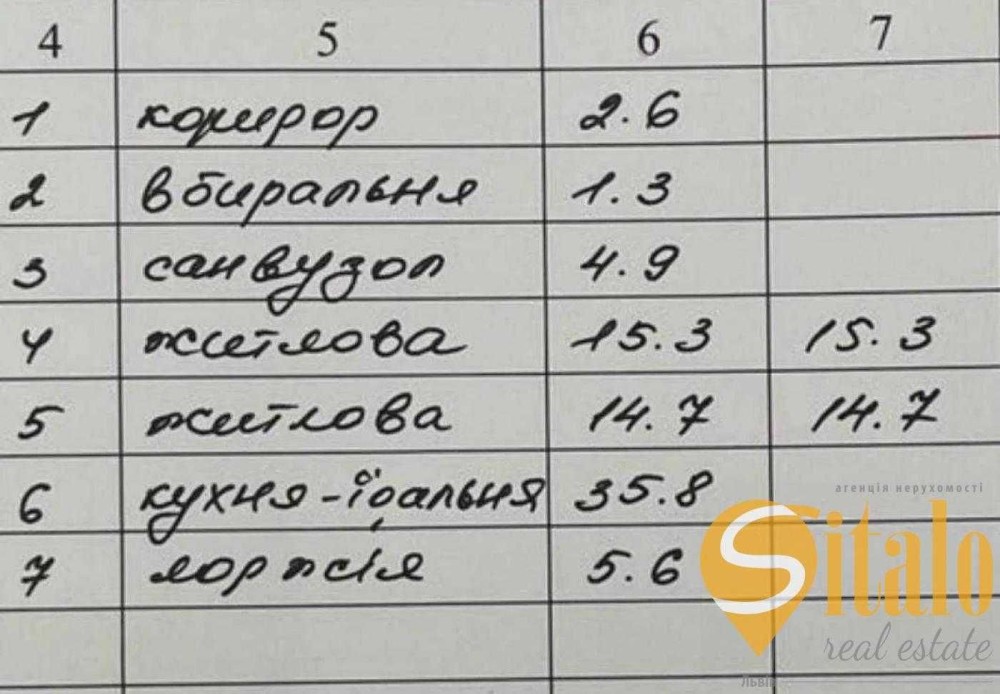 4 5 6 7
1 коридор 2.6
2 вбиральня 1.3
3 санвузол 4.9
4 житлова 15.3 15.3
5 житлова 14.7 14.7
6 кухня-їдальня 35.8
7 лоджія 5.6
агенція нерухомості
Sitalo
real estate
ЛЬВІВ